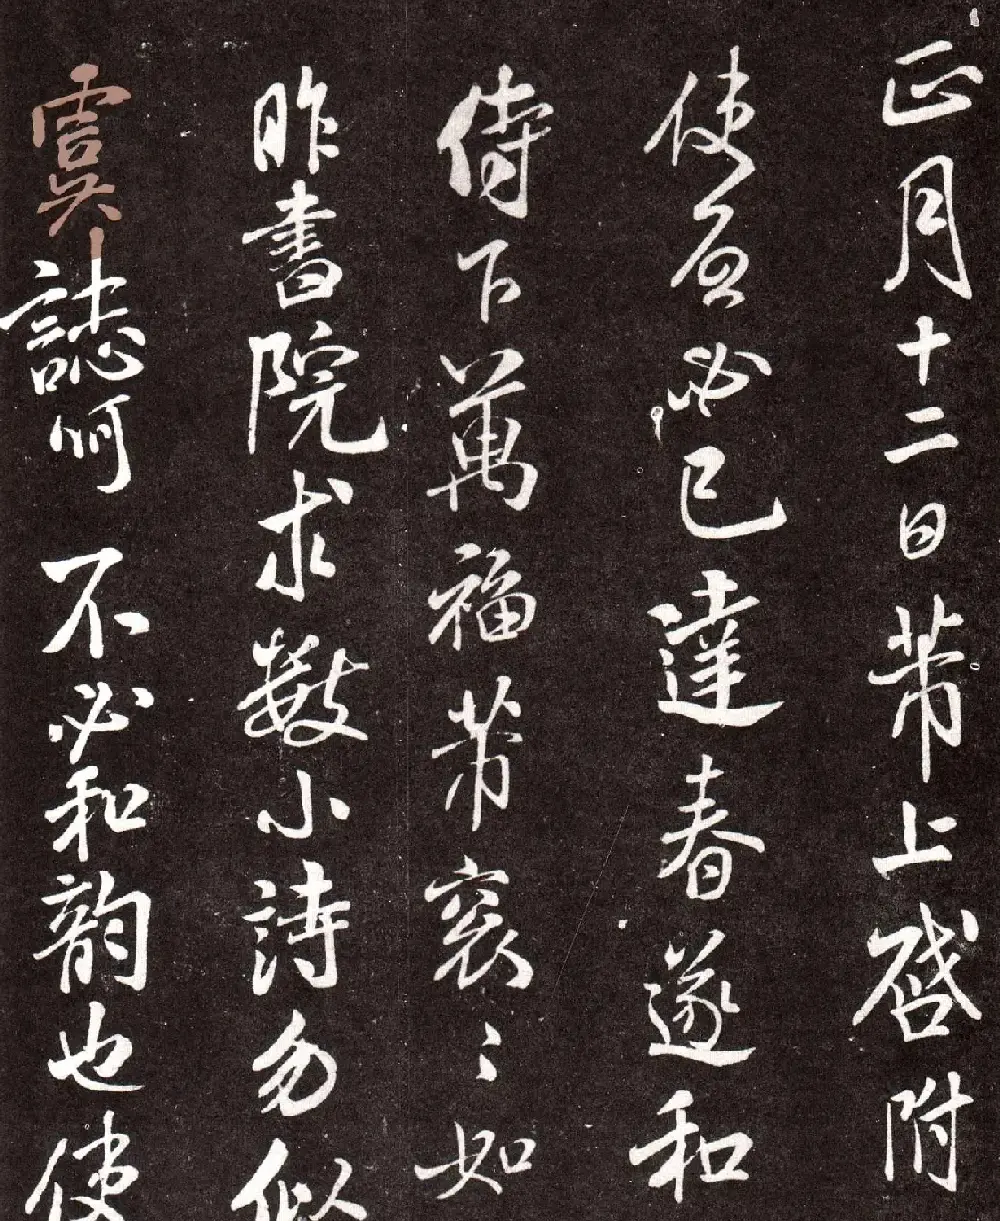 正月十二日芾上啓附
使必已達春遂和
侍下萬福芾衮〻如
昨書院求數小詩勿似
虞誌呵不必和韵也使